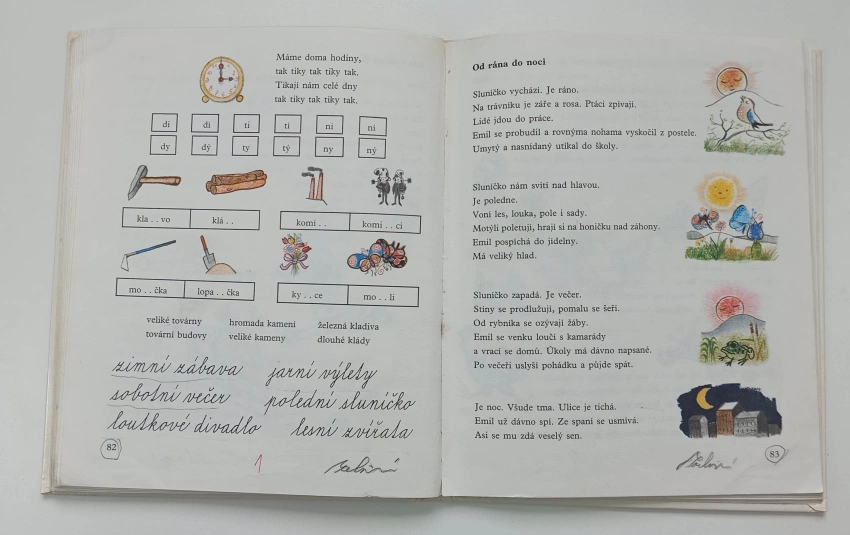 Máme doma hodiny,
tak tiky tak tiky tak.
Tikají nám celé dny
tak tiky tak tiky tak.
di di ti ti ni ní
dy dý ty tý ny ný
kla . . vo klá . .
komí . . komi . . ci
mo . . čka lopa . . čka
ky . . ce mo . . li
veliké továrny hromada kamení železná kladiva
tovární budovy veliké kameny dlouhé klády
zimní zábava jarní výlety
sobotní večer polední sluníčko
loutkové divadlo lesní zvířata
82
1
Od rána do noci
Sluníčko vychází. Je ráno.
Na trávníku je záře a rosa. Ptáci zpívají.
Lidé jdou do práce.
Emil se probudil a rovnýma nohama vyskočil z postele.
Umytý a nasnídaný utíkal do školy.
Sluníčko nám svítí nad hlavou.
Je poledne.
Voní les, louka, pole i sady.
Motýli poletují, hrají si na honičku nad záhony.
Emil pospíchá do jídelny.
Má veliký hlad.
Sluníčko zapadá. Je večer.
Stíny se prodlužují, pomalu se šeří.
Od rybníka se ozývají žáby.
Emil se venku loučí s kamarády
a vrací se domů. Úkoly má dávno napsané.
Po večeři uslyší pohádku a půjde spát.
Je noc. Všude tma. Ulice je tichá.
Emil už dávno spí. Ze spaní se usmívá.
Asi se mu zdá veselý sen.
83